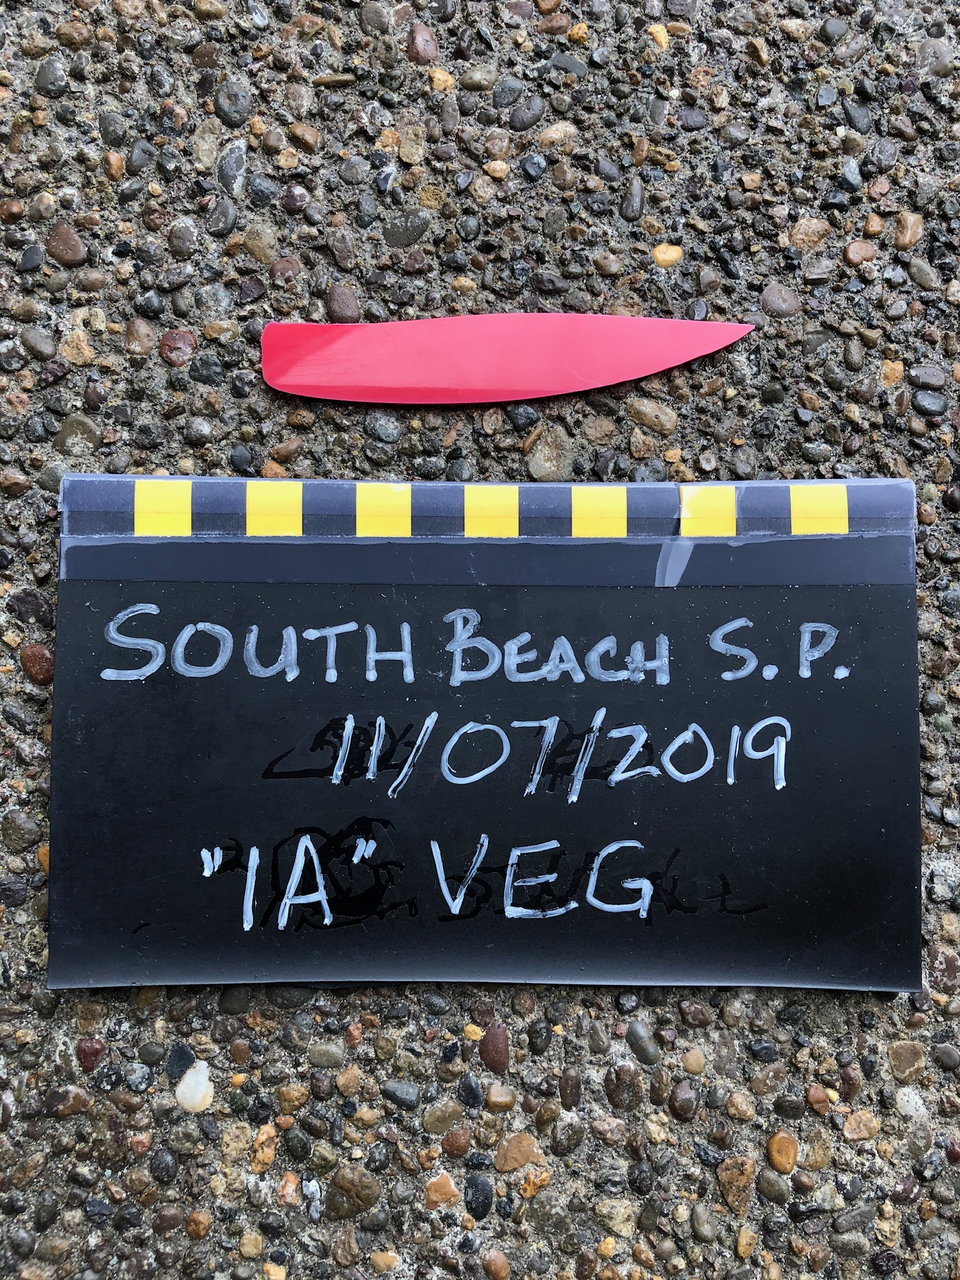 SOUTH BEACH S.P.
11/07/2019
"IA" VEG